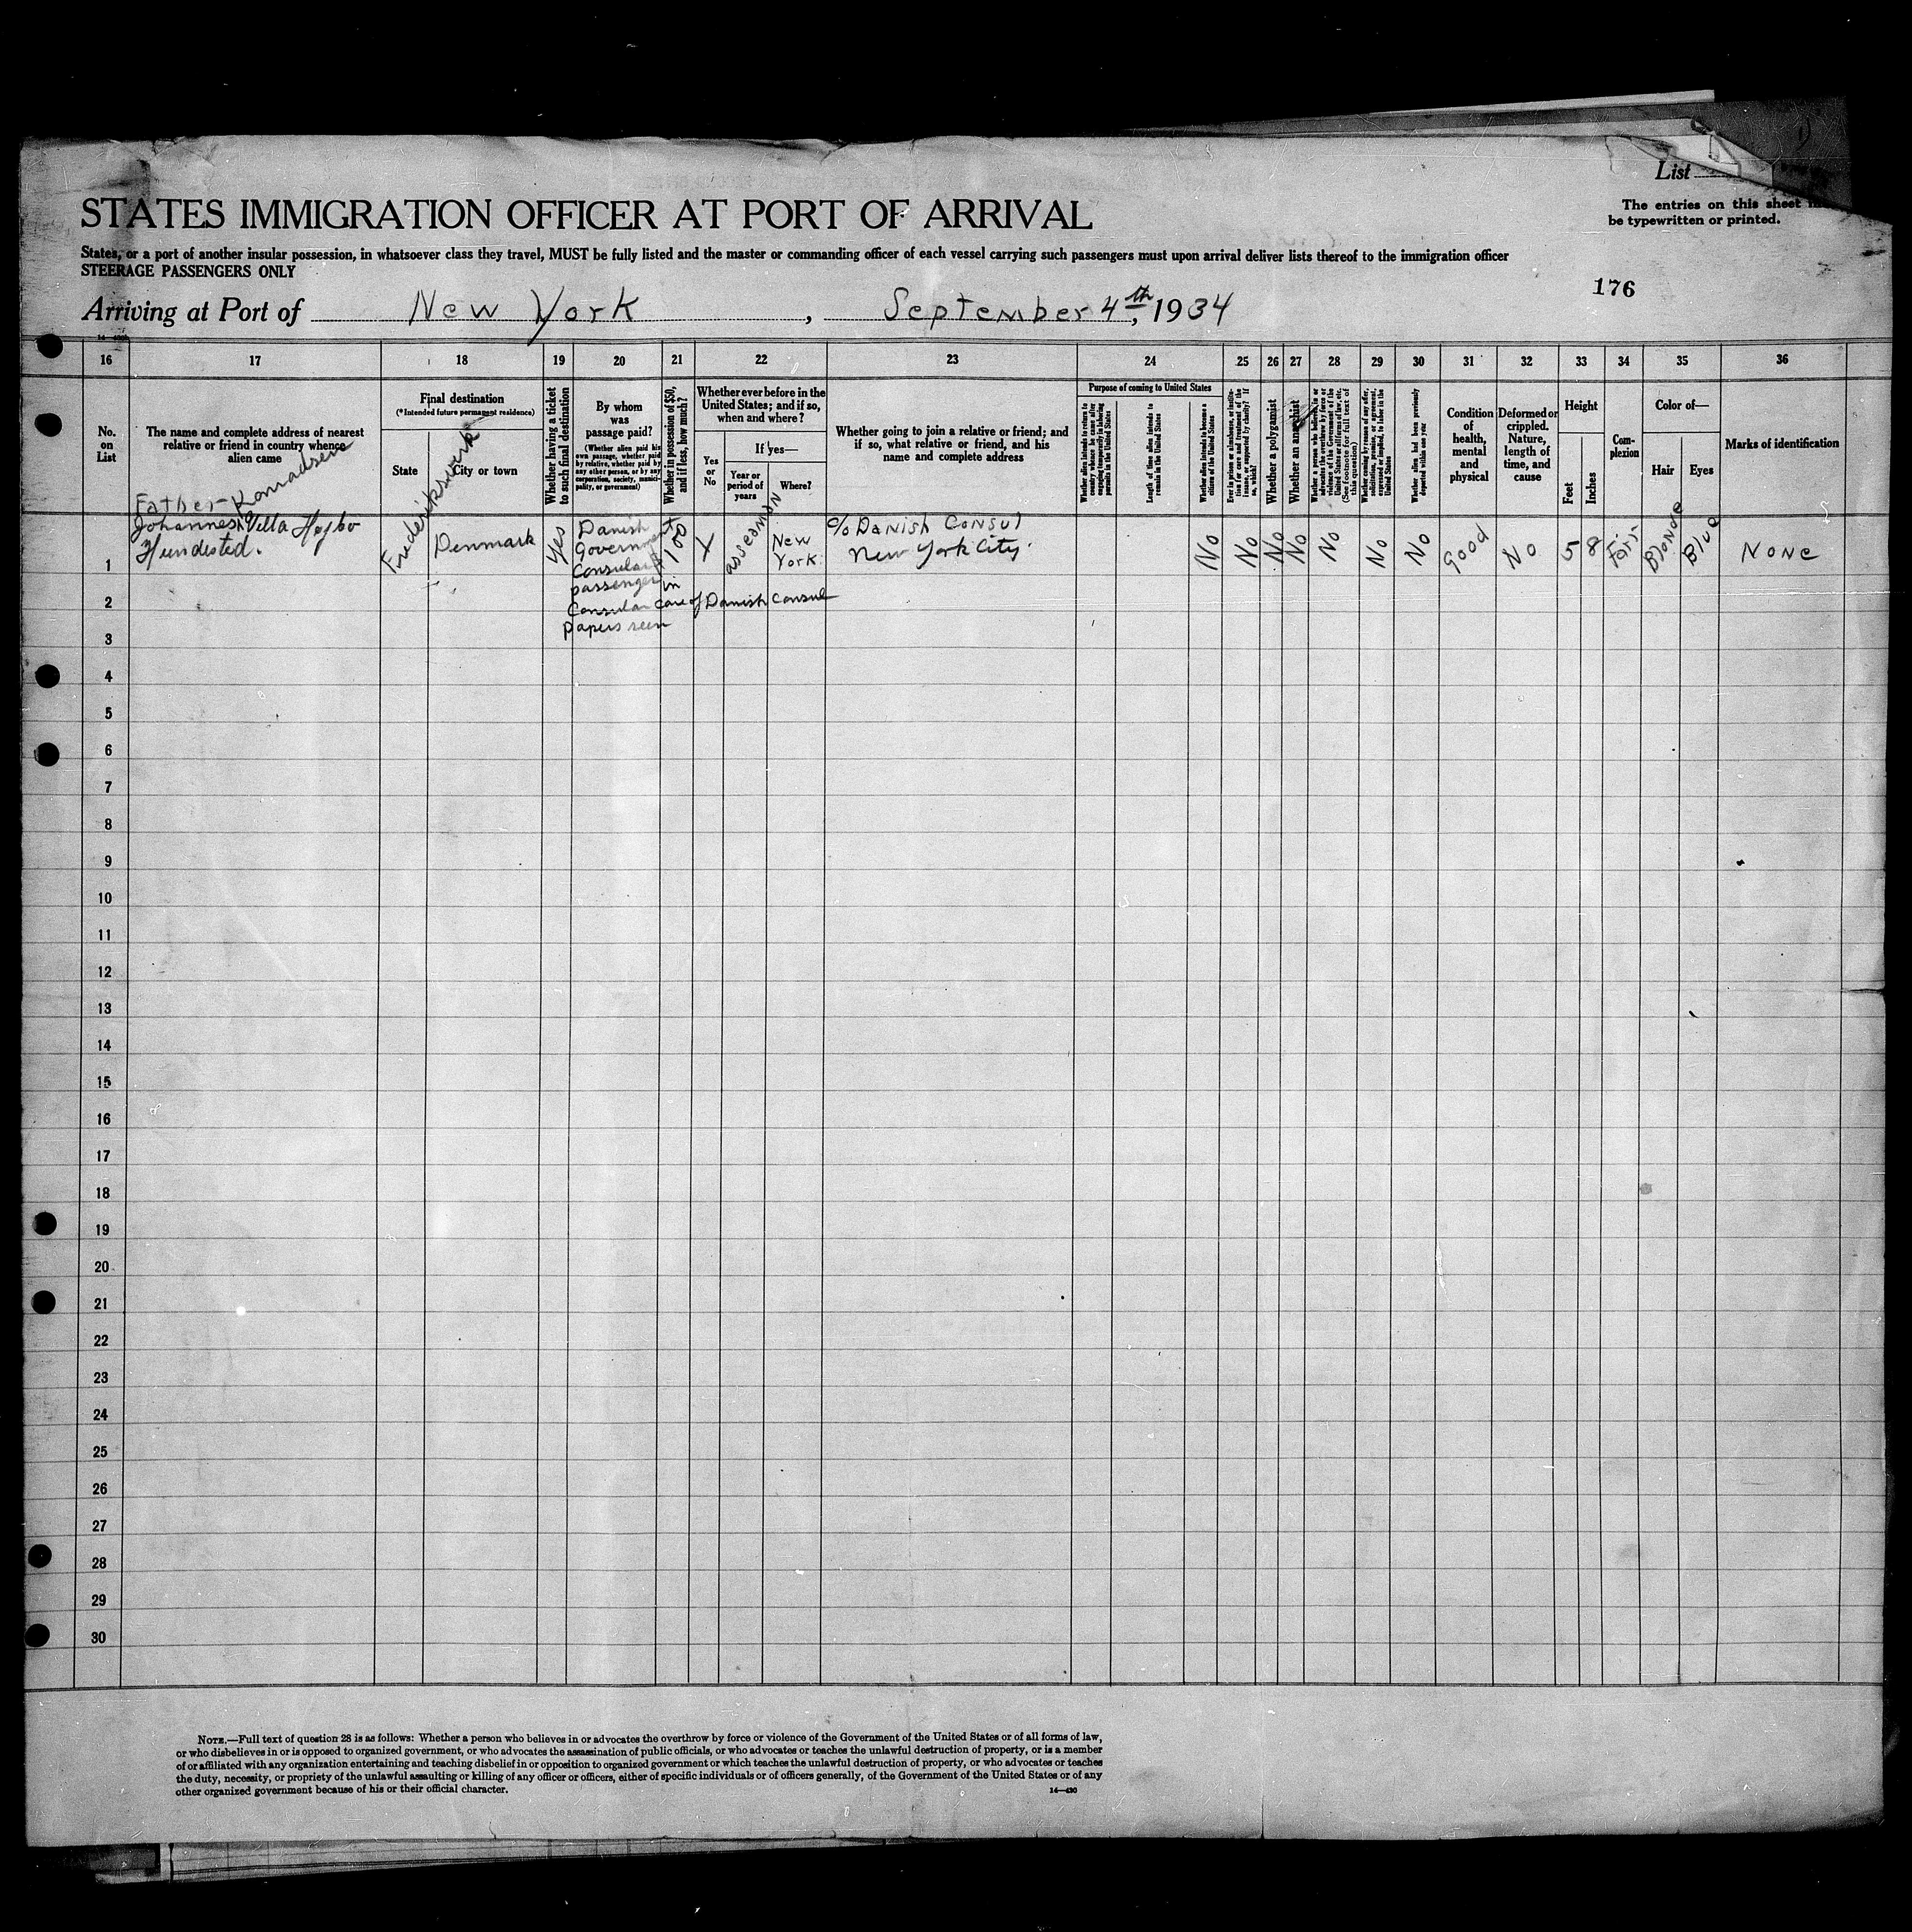 List
STATES IMMIGRATION OFFICER AT PORT OF ARRIVAL
The entries on this sheet
be typewritten or printed.
States, or a port of another insular possession, in whatsoever class they travel, MUST be fully listed and the master or commanding officer of each vessel carrying such passengers must upon arrival deliver lists thereof to the immigration officer
STEERAGE PASSENGERS ONLY
176
Arriving at Port of New York, September 4th, 1934
16 17 18 19 20 21 22 23 24 25 26 27 28 29 30 31 32 33 34 35 36
No. on List
The name and complete address of nearest relative or friend in country whence alien came
Final destination
(*Intended future permanent residence)
State
City or town
Whether having a ticket to such final destination
By whom was passage paid?
(Whether alien paid his own passage, whether paid by relative, whether paid by any other person, or by any corporation, society, municipality, or government)
Whether in possession of $50, and if less, how much?
Whether ever before in the United States; and if so, when and where?
Yes or No
If yes—
Year or period of years
Where?
Whether going to join a relative or friend; and if so, what relative or friend, and his name and complete address
Purpose of coming to United States
Whether alien intends to return to country whence he came after engaging temporarily in laboring pursuits in the United States
Length of time alien intends to remain in the United States
Whether alien intends to become a citizen of the United States
Ever in prison or almshouse, or institution for care and treatment of the insane, or supported by charity? If so, which?
Whether a polygamist
Whether an anarchist
Whether a person who believes in or advocates the overthrow by force or violence of the Government of the United States or all forms of law, etc. (See footnote for full text of this question)
Whether coming by reason of any offer, solicitation, promise, or agreement, expressed or implied, to labor in the United States
Whether alien had been previously deported within one year
Condition of health, mental and physical
Deformed or crippled. Nature, length of time, and cause
Height
Feet
Inches
Complexion
Color of—
Hair
Eyes
Marks of identification
Father- Konradsen
Johannes Villa Hojbo
Hundested.
Frederiksværk
Denmark
Yes
Danish
Government
Consular
passenger in
Consular care of Danish Consul
papers seen
$100
X
as seaman
New York
c/o Danish Consul
New York City.
No No No No No No No Good No 5 8 Fair Blonde Blue None
1
2
3
4
5
6
7
8
9
10
11
12
13
14
15
16
17
18
19
20
21
22
23
24
25
26
27
28
29
30
NOTE.—Full text of question 28 is as follows: Whether a person who believes in or advocates the overthrow by force or violence of the Government of the United States or of all forms of law,
or who disbelieves in or is opposed to organized government, or who advocates the assassination of public officials, or who advocates or teaches the unlawful destruction of property, or is a member
of or affiliated with any organization entertaining and teaching disbelief in or opposition to organized government or which teaches the unlawful destruction of property, or who advocates or teaches
the duty, necessity, or propriety of the unlawful assaulting or killing of any officer or officers, either of specific individuals or of officers generally, of the Government of the United States or of any
other organized government because of his or their official character.
14—430